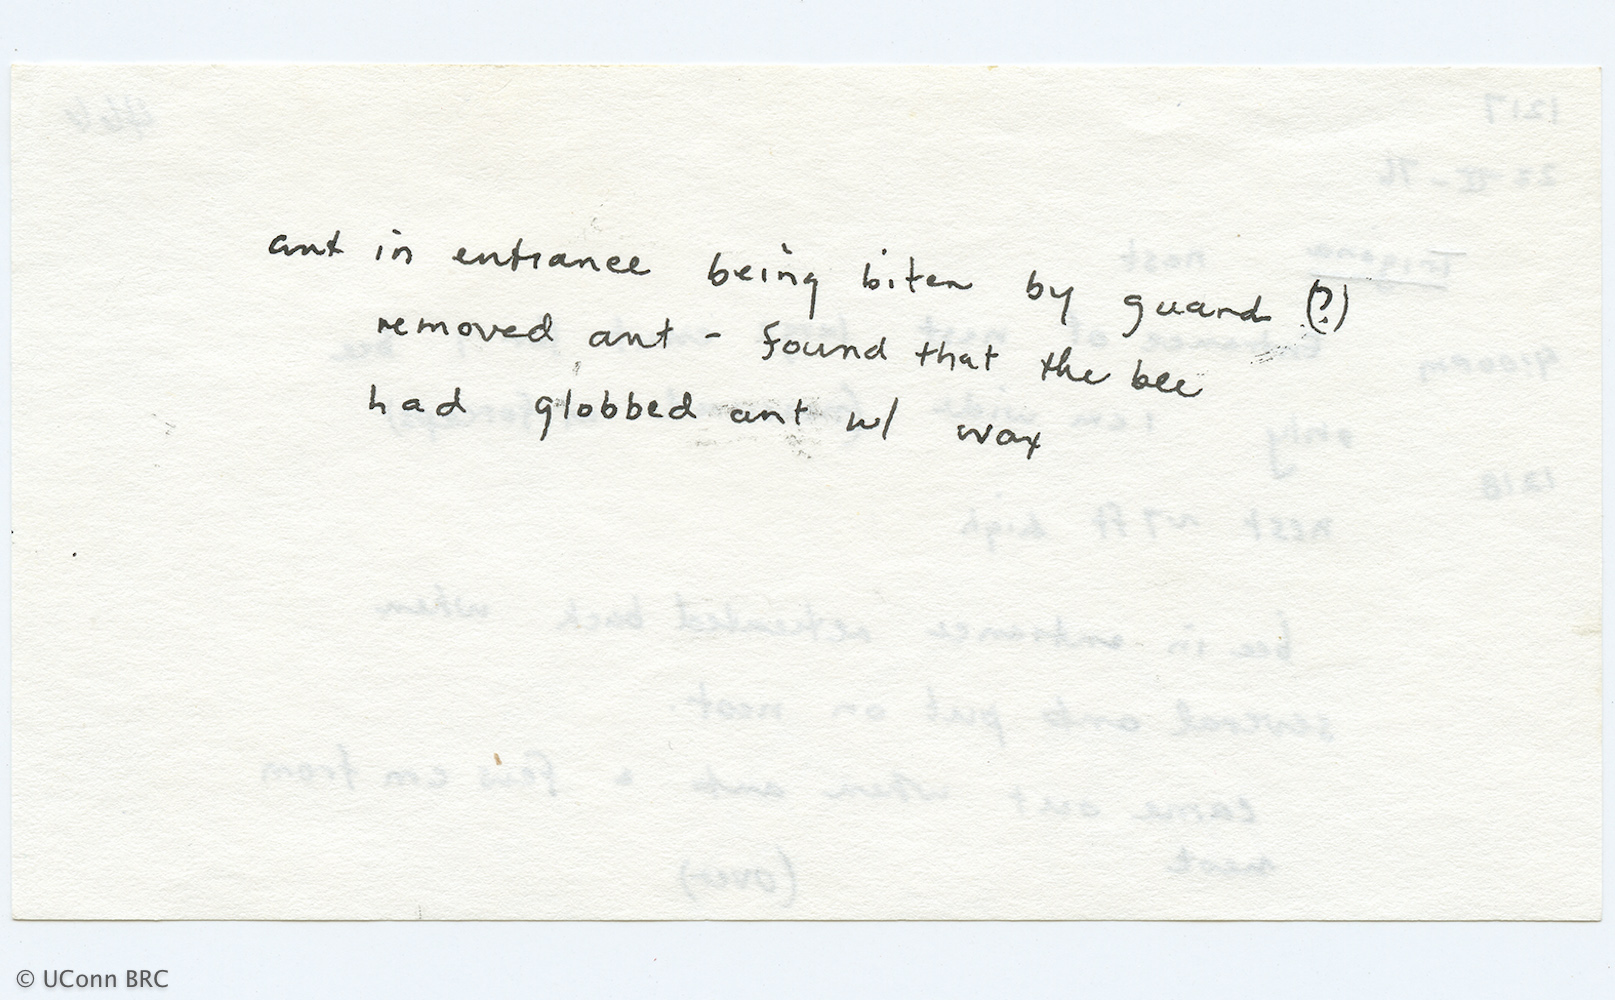 ant in entrance being biten by guard (?)
removed ant - found that the bee
had globbed ant w/ wax
© UConn BRC